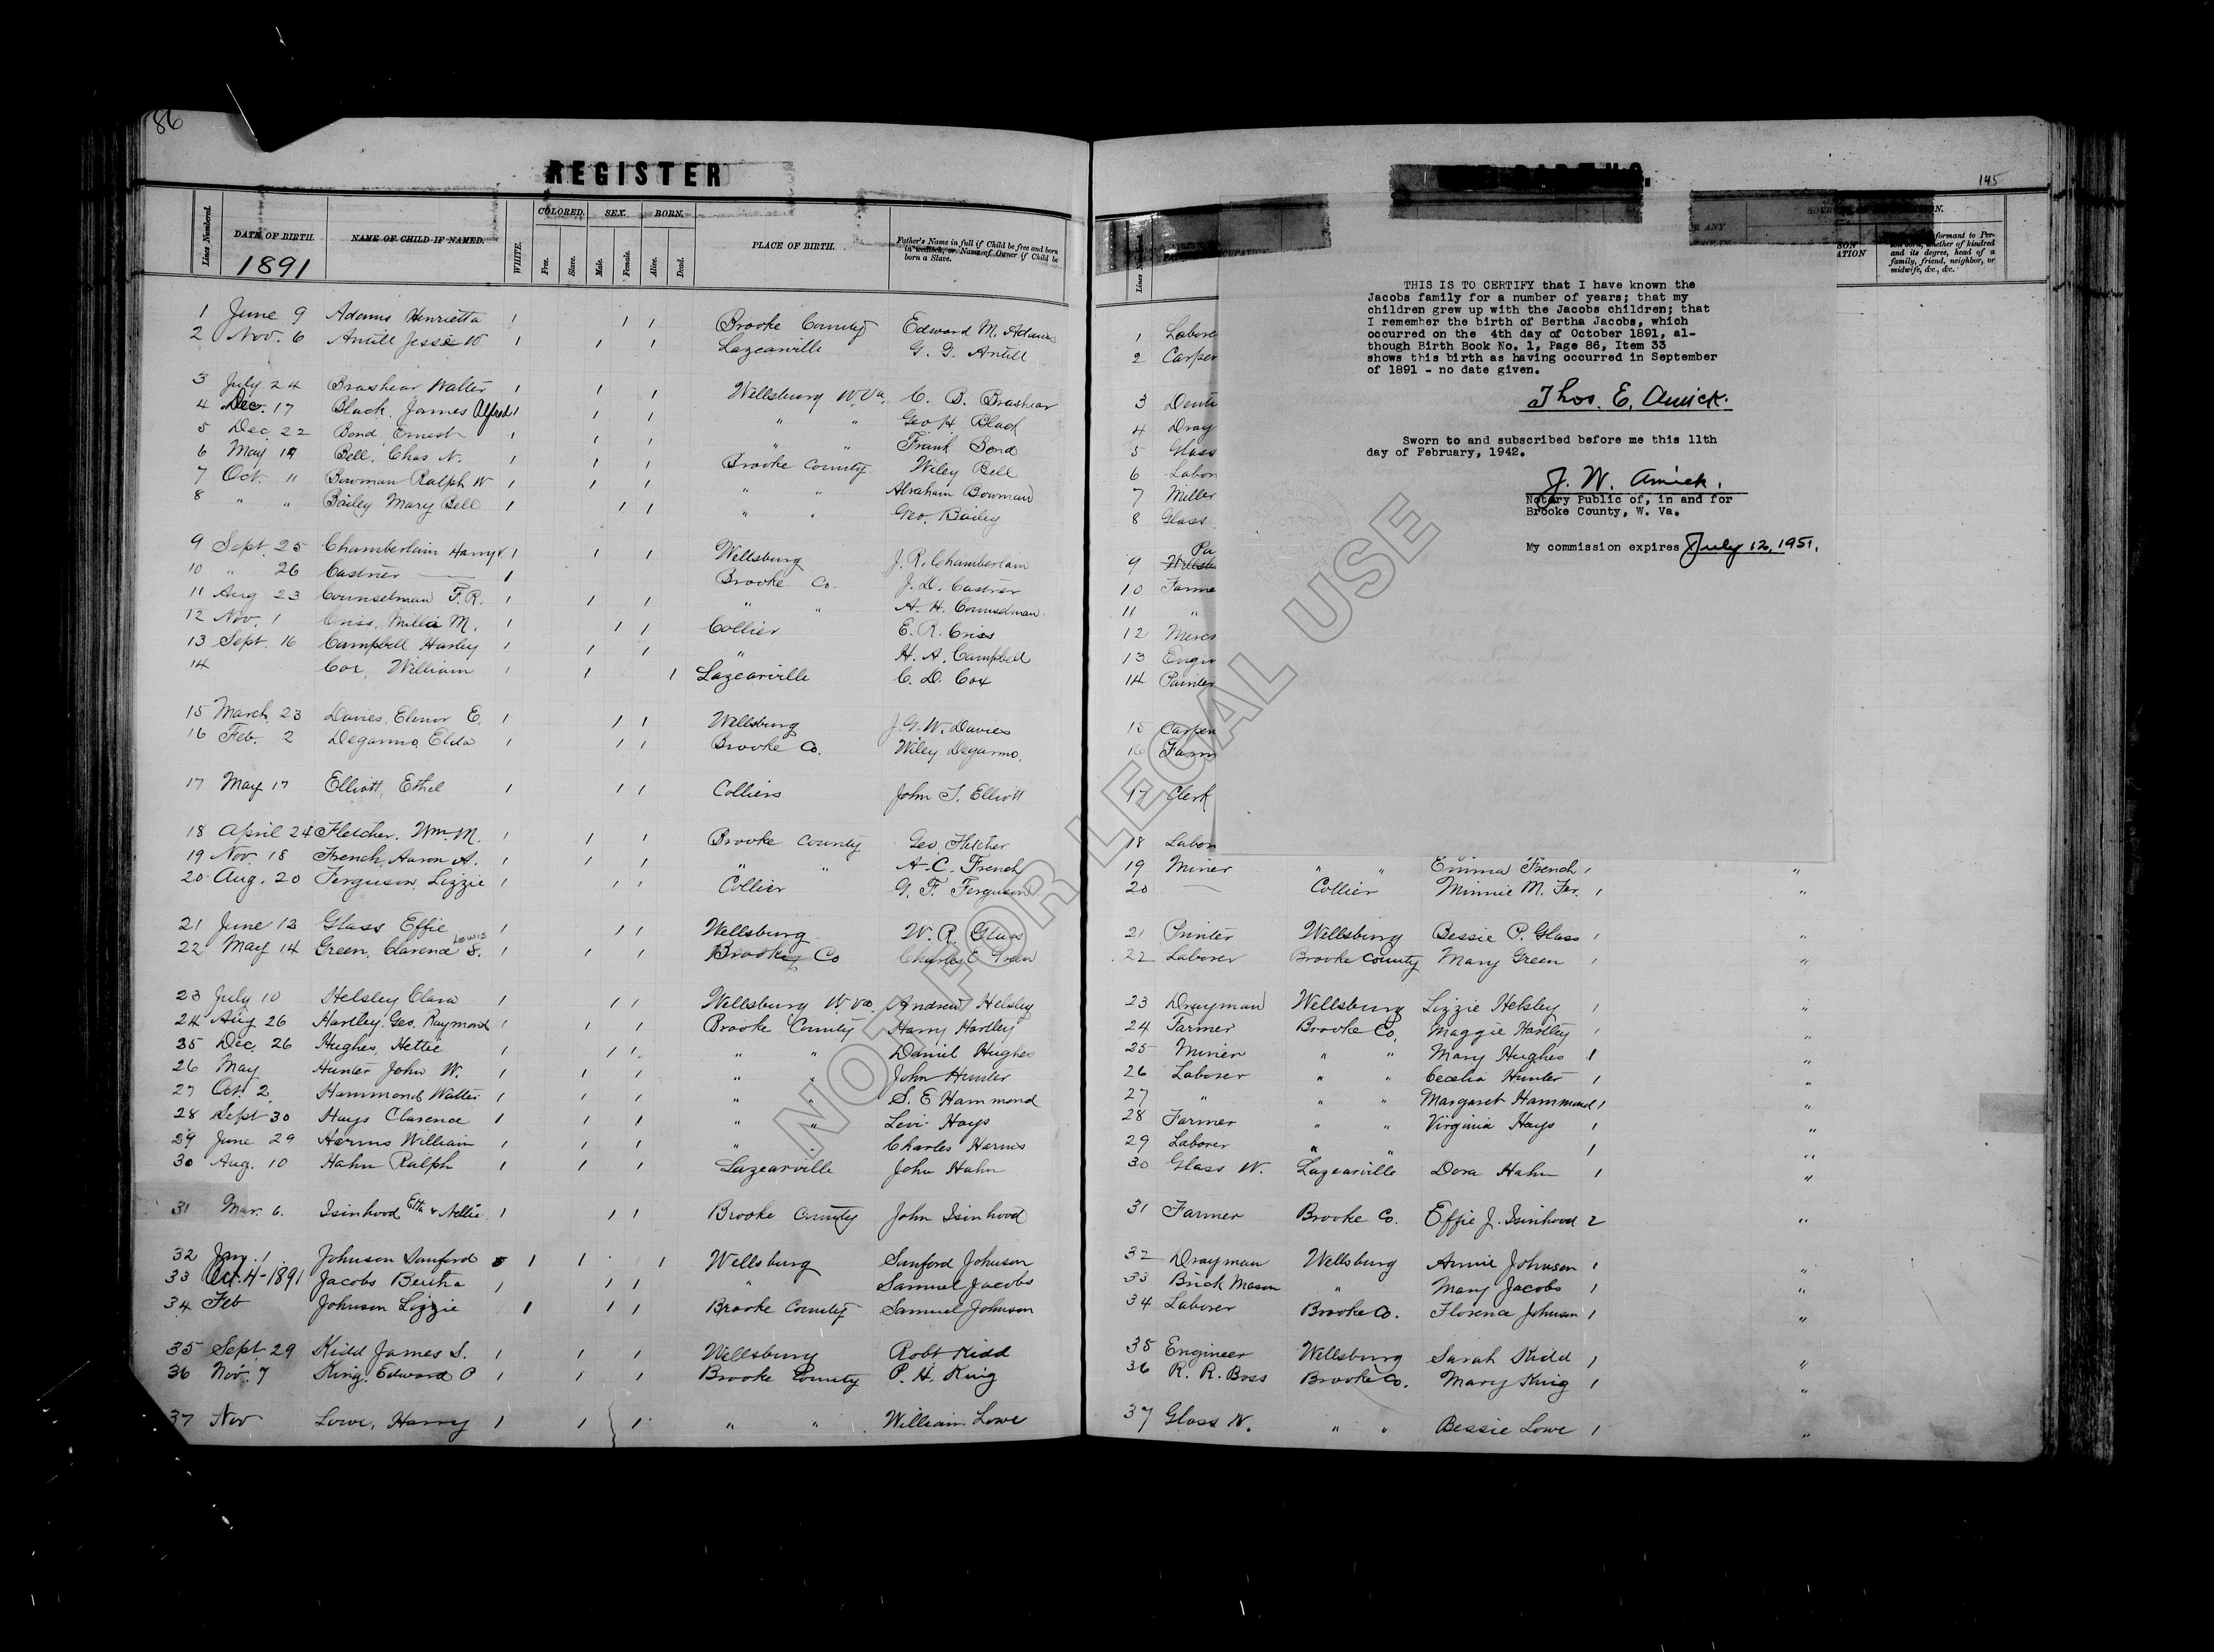 86
REGISTER
145
Lines Numbered.
DATE OF BIRTH.
1891
NAME OF CHILD IF NAMED.
WHITE.
COLORED.
Free.
Slave.
SEX.
Male.
Female.
BORN.
Alive.
Dead.
PLACE OF BIRTH.
Father's Name in full if Child be free and born
in wedlock, or Name of Owner if Child be
born a Slave.
1 June 9 Adams Henrietta 1 1 1 Brooke County Edward M. Adams
2 Nov. 6 Antill Jesse W 1 1 1 Lazearville G. G. Antill
3 July 24 Brashear Walter 1 1 1 Wellsburg W.Va. C. B. Brashear
4 Dec. 17 Black, James Alfred 1 1 1 " " Geo H Black
5 Dec 22 Bond, Ernest 1 1 1 " " Frank Bond
6 May Bell, Chas N. 1 1 1 Brooke County Wiley Bell
7 Oct. 11 Bowman Ralph W 1 1 1 " " Abraham Bowman
8 " " Bailey Mary Bell 1 1 1 " " Geo. Bailey
9 Sept. 25 Chamberlain Harry 1 1 1 Wellsburg J. R. Chamberlain
10 " 26 Castner 1 Brooke Co. J. D. Castner
11 Aug 23 Counselman F. R. 1 1 1 " " A. H. Counselman
12 Nov. 1 Criss, Millie M. 1 1 1 Collier E. R. Criss
13 Sept. 16 Campbell Harley 1 1 1 " H. A. Campbell
14 Cox, William 1 1 1 Lazearville C. D. Cox
15 March 23 Davies, Elenor E. 1 1 1 Wellsburg J. G. W. Davies
16 Feb. 2 Degarmo, Elda 1 1 1 Brooke Co. Wiley Degarmo.
17 May 17 Elliott, Ethel 1 1 1 Colliers John T. Elliott
18 April 24 Fletcher, Wm. M. 1 1 1 Brooke County Geo. Fletcher
19 Nov. 18 French, Aaron A. 1 1 1 " " A. C. French
20 Aug. 20 Ferguson, Lizzie 1 1 1 Collier G. F. Ferguson
21 June 13 Glass Effie 1 1 1 Wellsburg W. R. Glass
22 May 14 Green, Clarence Lewis S. 1 1 1 Brooke Co Charles E Green
23 July 10 Helsley Clara 1 1 1 Wellsburg W.Va. Andrew Helsley
24 Aug 26 Hartley, Geo. Raymond 1 1 1 Brooke County Harry Hartley
25 Dec. 26 Hughes, Hettie 1 1 1 " " Daniel Hughes
26 May Hunter John W. 1 1 1 " " John Hunter
27 Oct. 2 Hammond Walter 1 1 1 " " S. E Hammond
28 Sept 30 Hays Clarence 1 1 1 " " Levi Hays
29 June 29 Harms William 1 1 1 " Charles Harms
30 Aug. 10 Hahn Ralph 1 1 1 Lazearville John Hahn
31 Mar. 6. Isinhood Etta & Nellie 1 1 1 Brooke County John Isinhood
32 Jan. 1 Johnson Sanford 1 1 1 Wellsburg Sanford Johnson
33 Oct. 4-1891 Jacobs Bertha 1 1 1 " Samuel Jacobs
34 Feb Johnson Lizzie 1 1 1 Brooke County Samuel Johnson
35 Sept 29 Kidd James S. 1 1 1 Wellsburg Robt Kidd
36 Nov. 7 King, Edward P 1 1 1 Brooke County P. H. King
37 Nov Lowe, Harry 1 1 1 " " William Lowe
formant to Per-
whether of kindred
and its degree, head of a
family, friend, neighbor, or
midwife, &c., &c.
THIS IS TO CERTIFY that I have known the
Jacobs family for a number of years; that my
children grew up with the Jacobs children; that
I remember the birth of Bertha Jacobs, which
occurred on the 4th day of October 1891, al-
though Birth Book No. 1, Page 86, Item 33
shows this birth as having occurred in September
of 1891 - no date given.
Thos. E. Amick.
Sworn to and subscribed before me this 11th
day of February, 1942.
J. W. Amick.
Notary Public of, in and for
Brooke County, W. Va.
My commission expires July 12, 1951.
1 Labore
2 Carpen
3 Denti
4 Dray
5 Glass
6 Labor
7 Miller
8 Glass
9 Pa
10 Farme
11 "
12 Merch
13 Engin
14 Painter
15 Carpen
16 Farm
17 Clerk
18 Labor
19 Miner " " Emma French 1 "
20 Collier Minnie M. Fer. 1 "
21 Printer Wellsburg Bessie P. Glass 1 "
22 Laborer Brooke County Mary Green 1 "
23 Drayman Wellsburg Lizzie Helsley 1 "
24 Farmer Brooke Co. Maggie Hartley 1 "
25 Miner " " Mary Hughes 1 "
26 Laborer " " Cecelia Hunter 1 "
27 " " " Margaret Hammond 1 "
28 Farmer " " Virginia Hays 1 "
29 Laborer " " 1 "
30 Glass W. Lazearville Dora Hahn 1 "
31 Farmer Brooke Co. Effie J. Isinhood 2 "
32 Drayman Wellsburg Annie Johnson 1 "
33 Brick Mason " Mary Jacobs 1 "
34 Laborer Brooke Co. Florence Johnson 1 "
35 Engineer Wellsburg Sarah Kidd 1 "
36 R. R. Boss Brooke Co. Mary King 1 "
37 Glass W. " " Bessie Lowe 1 "
NOT FOR LEGAL USE